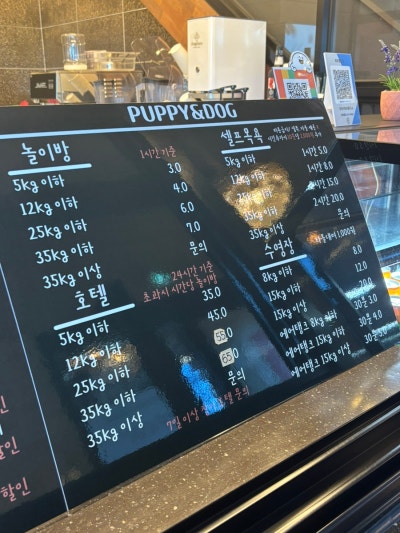 PUPPY&DOG
놀이방
1시간 기준
5kg 이하 3.0
12kg 이하 4.0
25kg 이하 6.0
35kg 이하 7.0
35kg 이상 문의
호텔
24시간 기준
초과시 시간당 놀이방
5kg 이하 35.0
12kg 이하 45.0
25kg 이하 55.0
35kg 이하 65.0
35kg 이상 문의
7일 이상 문의
셀프목욕
5kg 이하 1시간 5.0
12kg 이하 1시간 8.0
25kg 이하 15.0
35kg 이하 2시간 20.0
35kg 이상 문의
수영장
8kg 이하 8.0
15kg 이하 12.0
15kg 이상 20.0
에어탱크 8kg 이하 30분 3.0
에어탱크 15kg 이하 30분 4.0
에어탱크 15kg 이상 30분 5.0
할인
할인